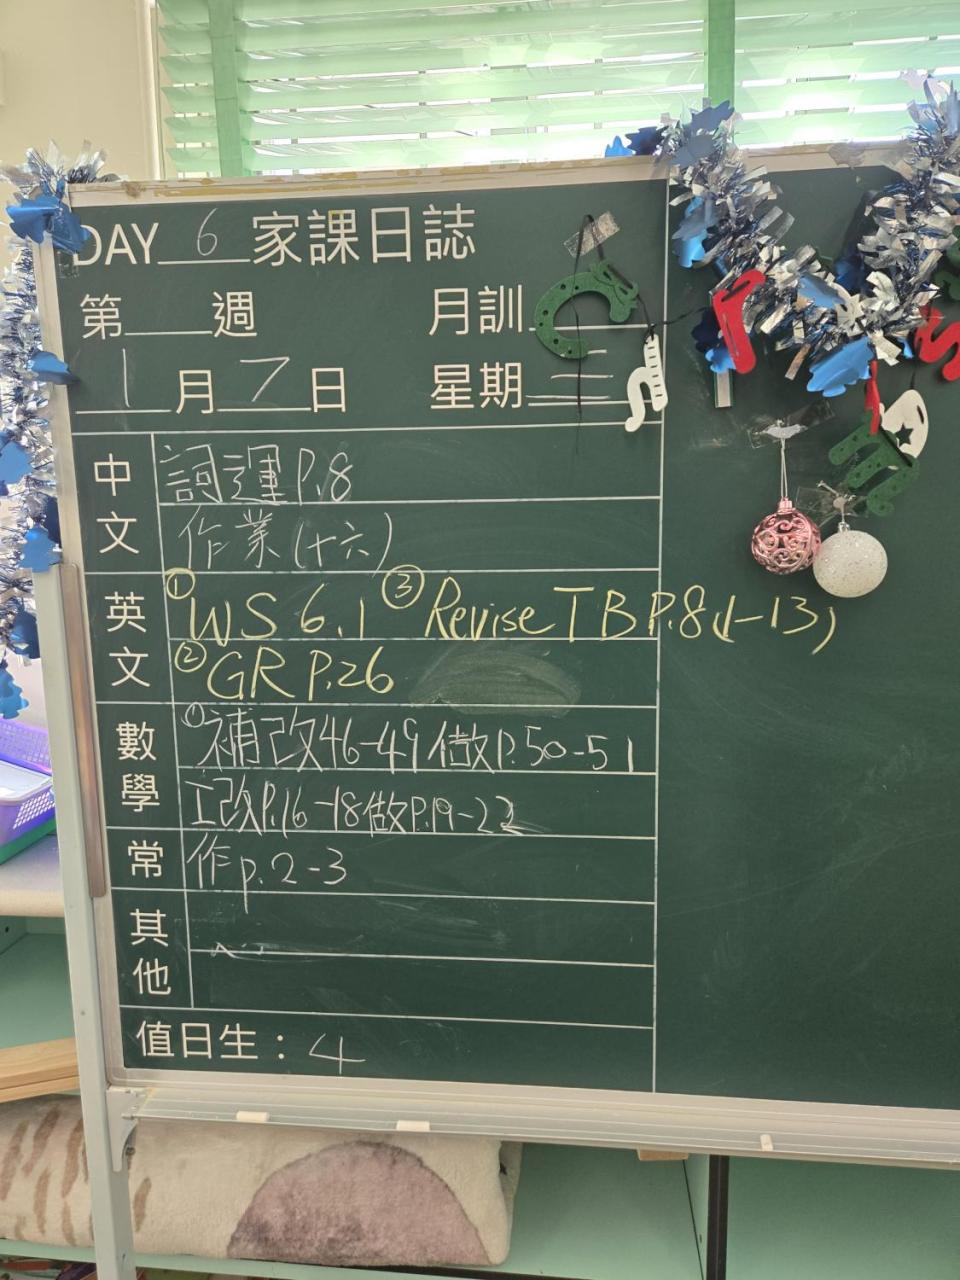 DAY 6 家課日誌
第___週 月訓___
1月7日 星期三
中文 詞運P.8
作業(十六)
英文 ①WS 6.1 ③Revise TB P.8(1-13)
②GR P.26
數學 ①補改46-49做P.50-51
工改P.16-18做P.19-22
常 作p.2-3
其他
值日生：4